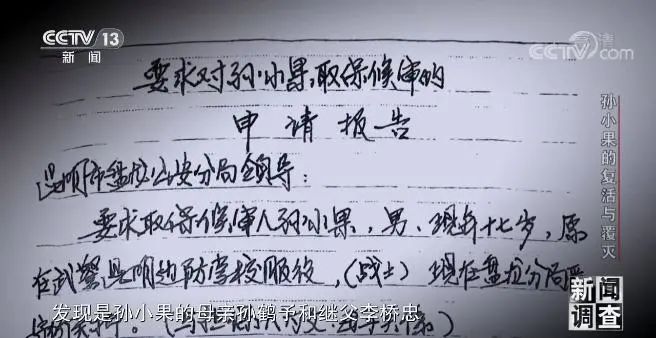 CCTV 13
新闻
CCTV.com
要求对孙小果取保候审的
申请报告
昆明市盘龙公安分局领导:
要求取保候审人孙小果,男、现年十七岁,原
在武警昆明边防学校服役,(战士)现在盘龙分局
发现是孙小果的母亲孙鹤予和继父李桥忠
孙小果的复活与覆灭
新闻
调查